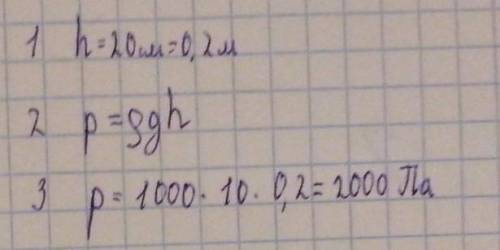 1 h = 20см = 0,2м
2 p = ρgh
3 p = 1000 · 10 · 0,2 = 2000 Па